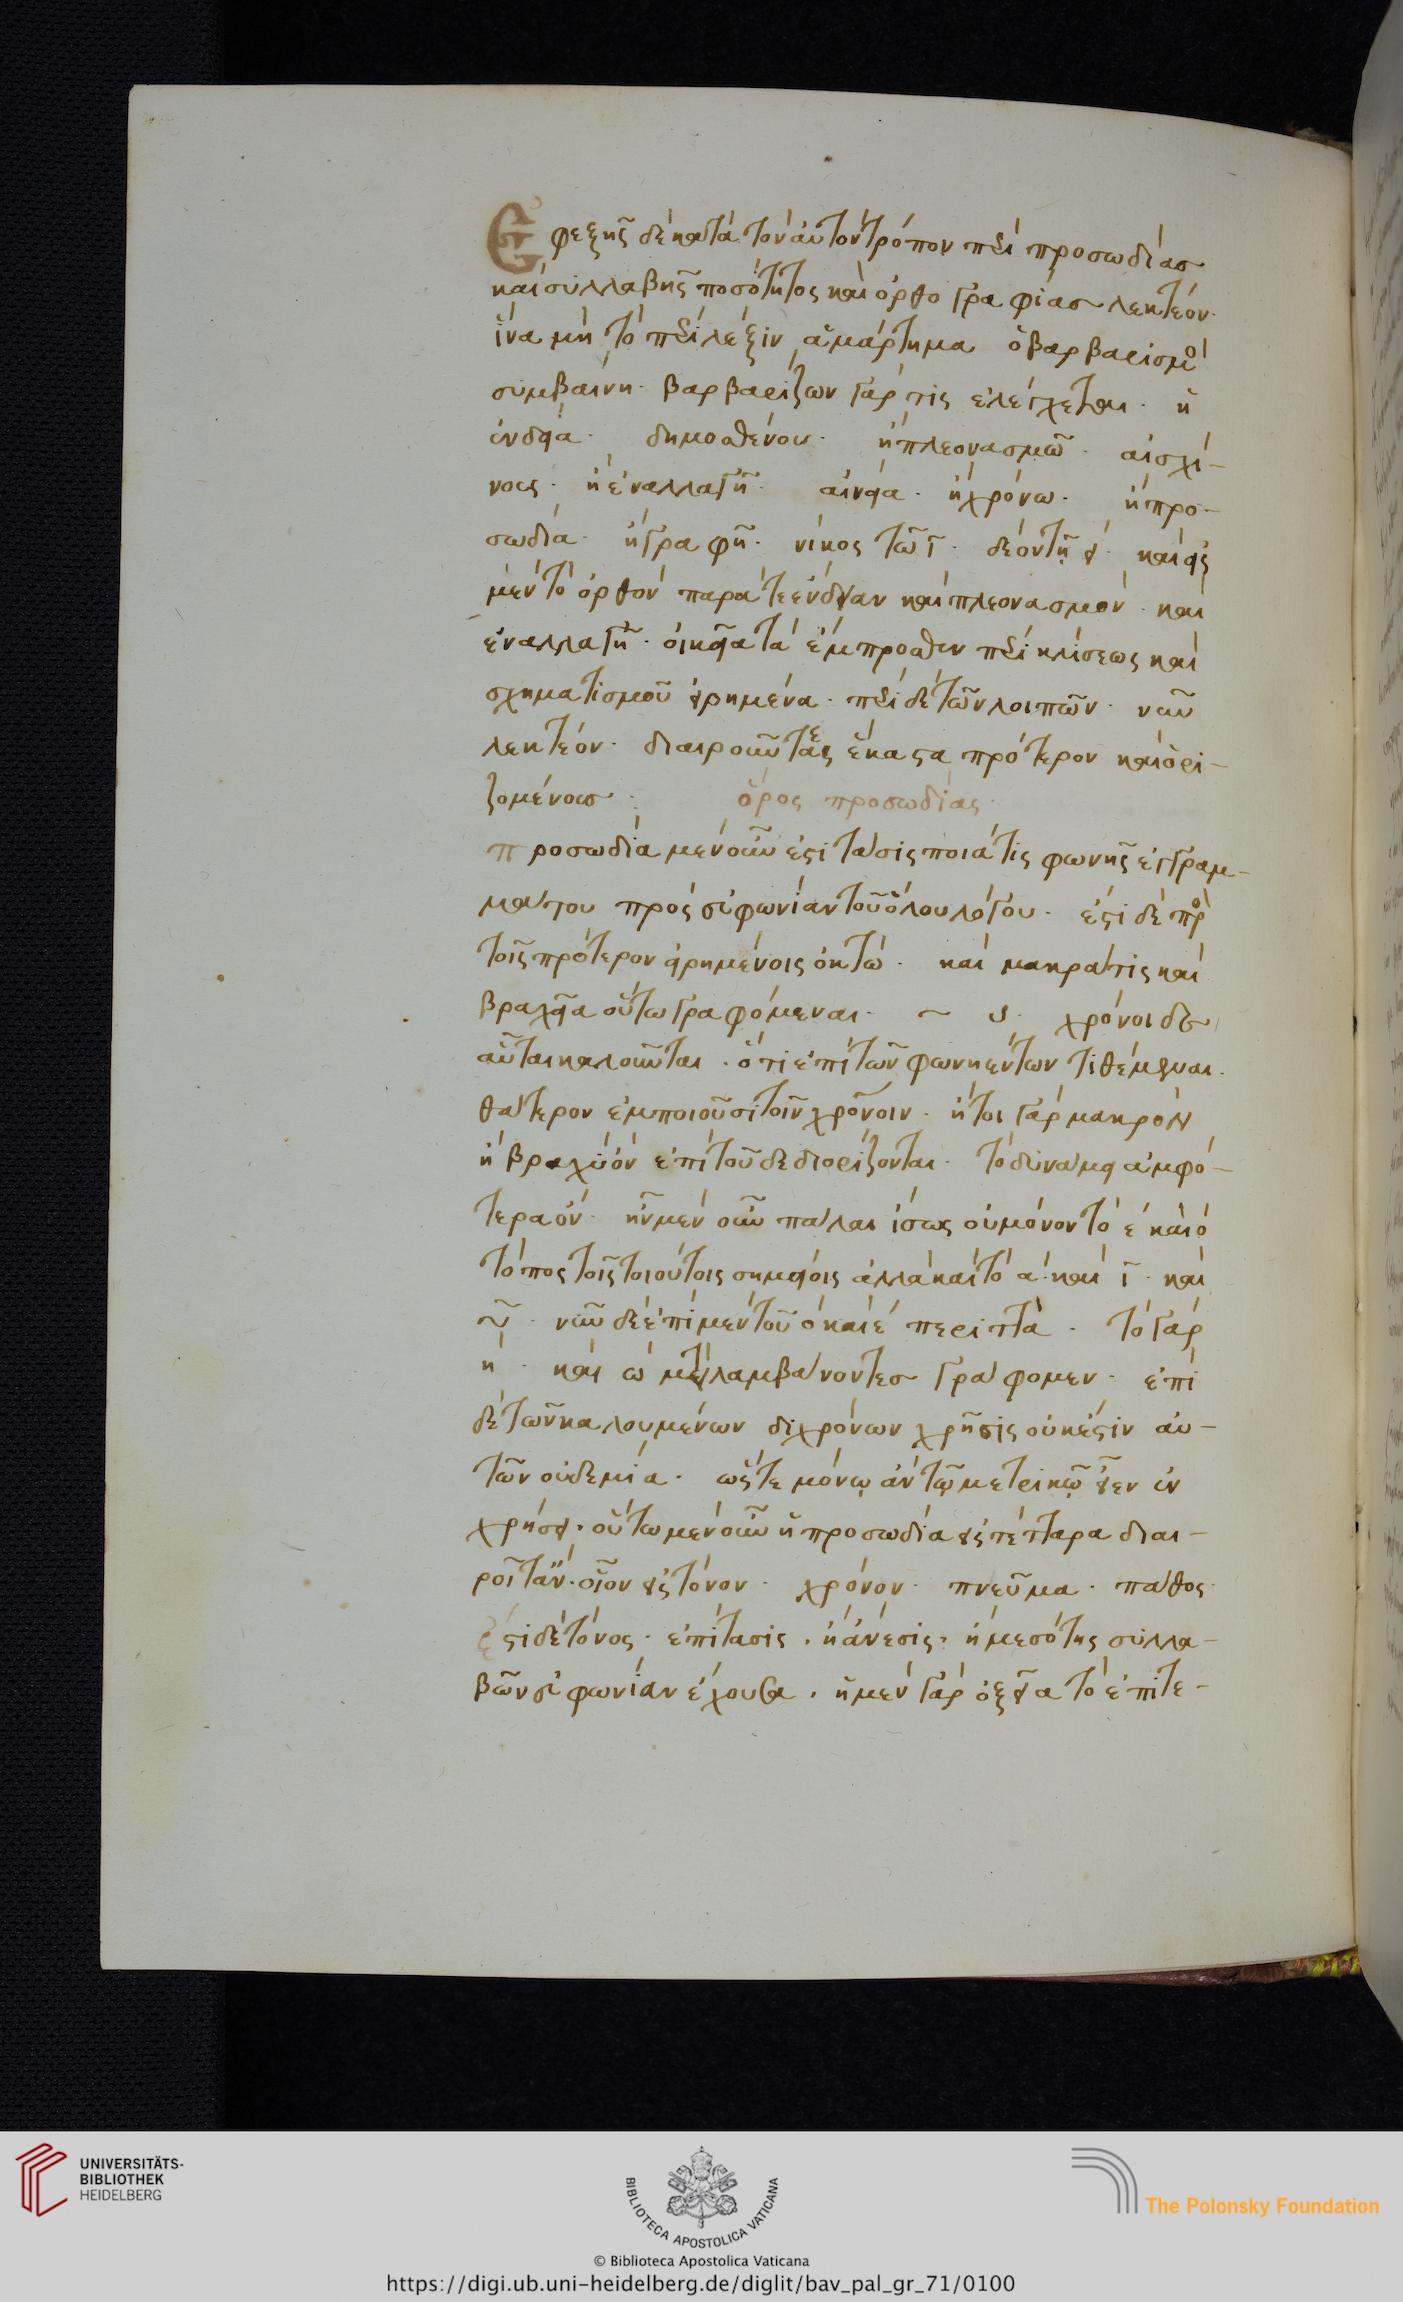 Ἐφεξῆς δὲ κατὰ τὸν αὐτὸν τρόπον περὶ προσωδίας
καὶ συλλαβῆς ποσότητος καὶ ὀρθογραφίας λεκτέον·
ἵνα μὴ τὸ περὶ λέξιν ἁμάρτημα ὁ βαρβαρισμὸς
συμβαίνη· βαρβαρίζων γάρ τις ἐλέγχεται· ἢ
ἐνδεία· δημοσθένου· ἢ πλεονασμῶ· αἰσχί-
νους· ἢ ἐναλλαγῆ· αἰνεία· ἢ χρόνω· ἢ προ-
σωδία· ἢ γραφῆ· νίκος τῶ ϊ· δέον τῇ ει· καὶ εἰς
μὲν τὸ ὀρθὸν παρά τε ἔνδειαν καὶ πλεονασμὸν· καὶ
ἐναλλαγὴ· οἰκεῖα τὰ ἔμπροσθεν περὶ κλίσεως καὶ
σχηματισμοῦ εἰρημένα· περὶ δὲ τῶν λοιπῶν· νῦν
λεκτέον· διαιροῦντας ἕκαστα πρότερον καὶ ὁρι-
ζομένους· ὅρος προσωδίας·
προσωδία μὲν οὖν ἐστὶ τάσις ποιά τις φωνῆς ἐγγραμ-
μάτου πρὸς συμφωνίαν τοῦ ὅλου λόγου· ἐστὶ δὲ πρὸς
τοῖς πρότερον εἰρημένοις ὀκτὼ· καὶ μακρά τις καὶ
βραχεῖα οὕτω γραφόμεναι· ~ υ· χρόνοι δὲ
αὗται καλοῦνται· ὅτι ἐπὶ τῶν φωνηέντων τιθέμεναι·
θάτερον ἐμποιοῦσι τοῖν χρόνοιν· ἤτοι γὰρ μακρὸν
ἢ βραχὺ ὂν ἐπὶ τοῦδε διορίζονται· τὸ δυνάμει ἀμφό-
τερα ὂν· ἦν μὲν οὖν πάλαι ἴσως οὐ μόνον τὸ ε καὶ ο
τόπος τοῖς τοιούτοις σημείοις ἀλλὰ καὶ τὸ α· καὶ ϊ· καὶ
υ· νῦν δὲ ἐπὶ μὲν τοῦ ο καὶ ε περιττὰ· τὸ γὰρ
η· καὶ ω μεταλαμβάνοντες γράφομεν· ἐπὶ
δὲ τῶν καλουμένων διχρόνων χρῆσις οὐκ ἔστιν αὐ-
τῶν οὐδεμία· ὥστε μόνῳ ἂν τῷ μετρικῷ εἶεν ἐν
χρήσει· οὕτω μὲν οὖν ἡ προσωδία εἰς τέτταρα διαι-
ροῖτ᾽ ἄν· οἷον εἰς τόνον· χρόνον· πνεῦμα· πάθος·
ἔστι δὲ τόνος· ἐπίτασις· ἢ ἄνεσις· ἢ μεσότης συλλα-
βῶν συμφωνίαν ἔχουσα· ἡ μὲν γὰρ ὀξεῖα τὸ ἐπιτε-
UNIVERSITÄTS-
BIBLIOTHEK
HEIDELBERG
BIBLIOTECA APOSTOLICA VATICANA
© Biblioteca Apostolica Vaticana
The Polonsky Foundation
https://digi.ub.uni-heidelberg.de/diglit/bav_pal_gr_71/0100